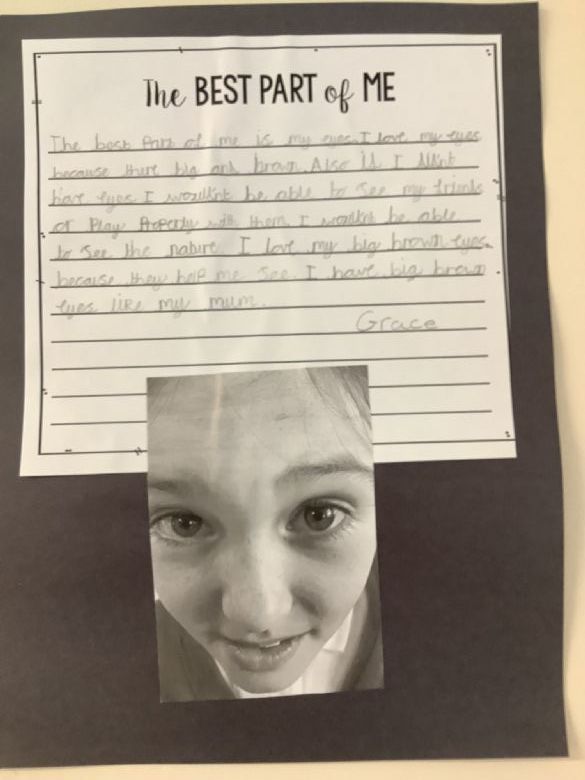 The BEST PART of ME
The best Part of me is my eyes. I love my eyes
because there big and brown. Also if I didnt
have eyes I wouldnt be able to see my friends
or Play Properly with them I wouldnt be able
to see the nature. I love my big brown eyes
because they help me see. I have big brown
eyes like my mum.
Grace